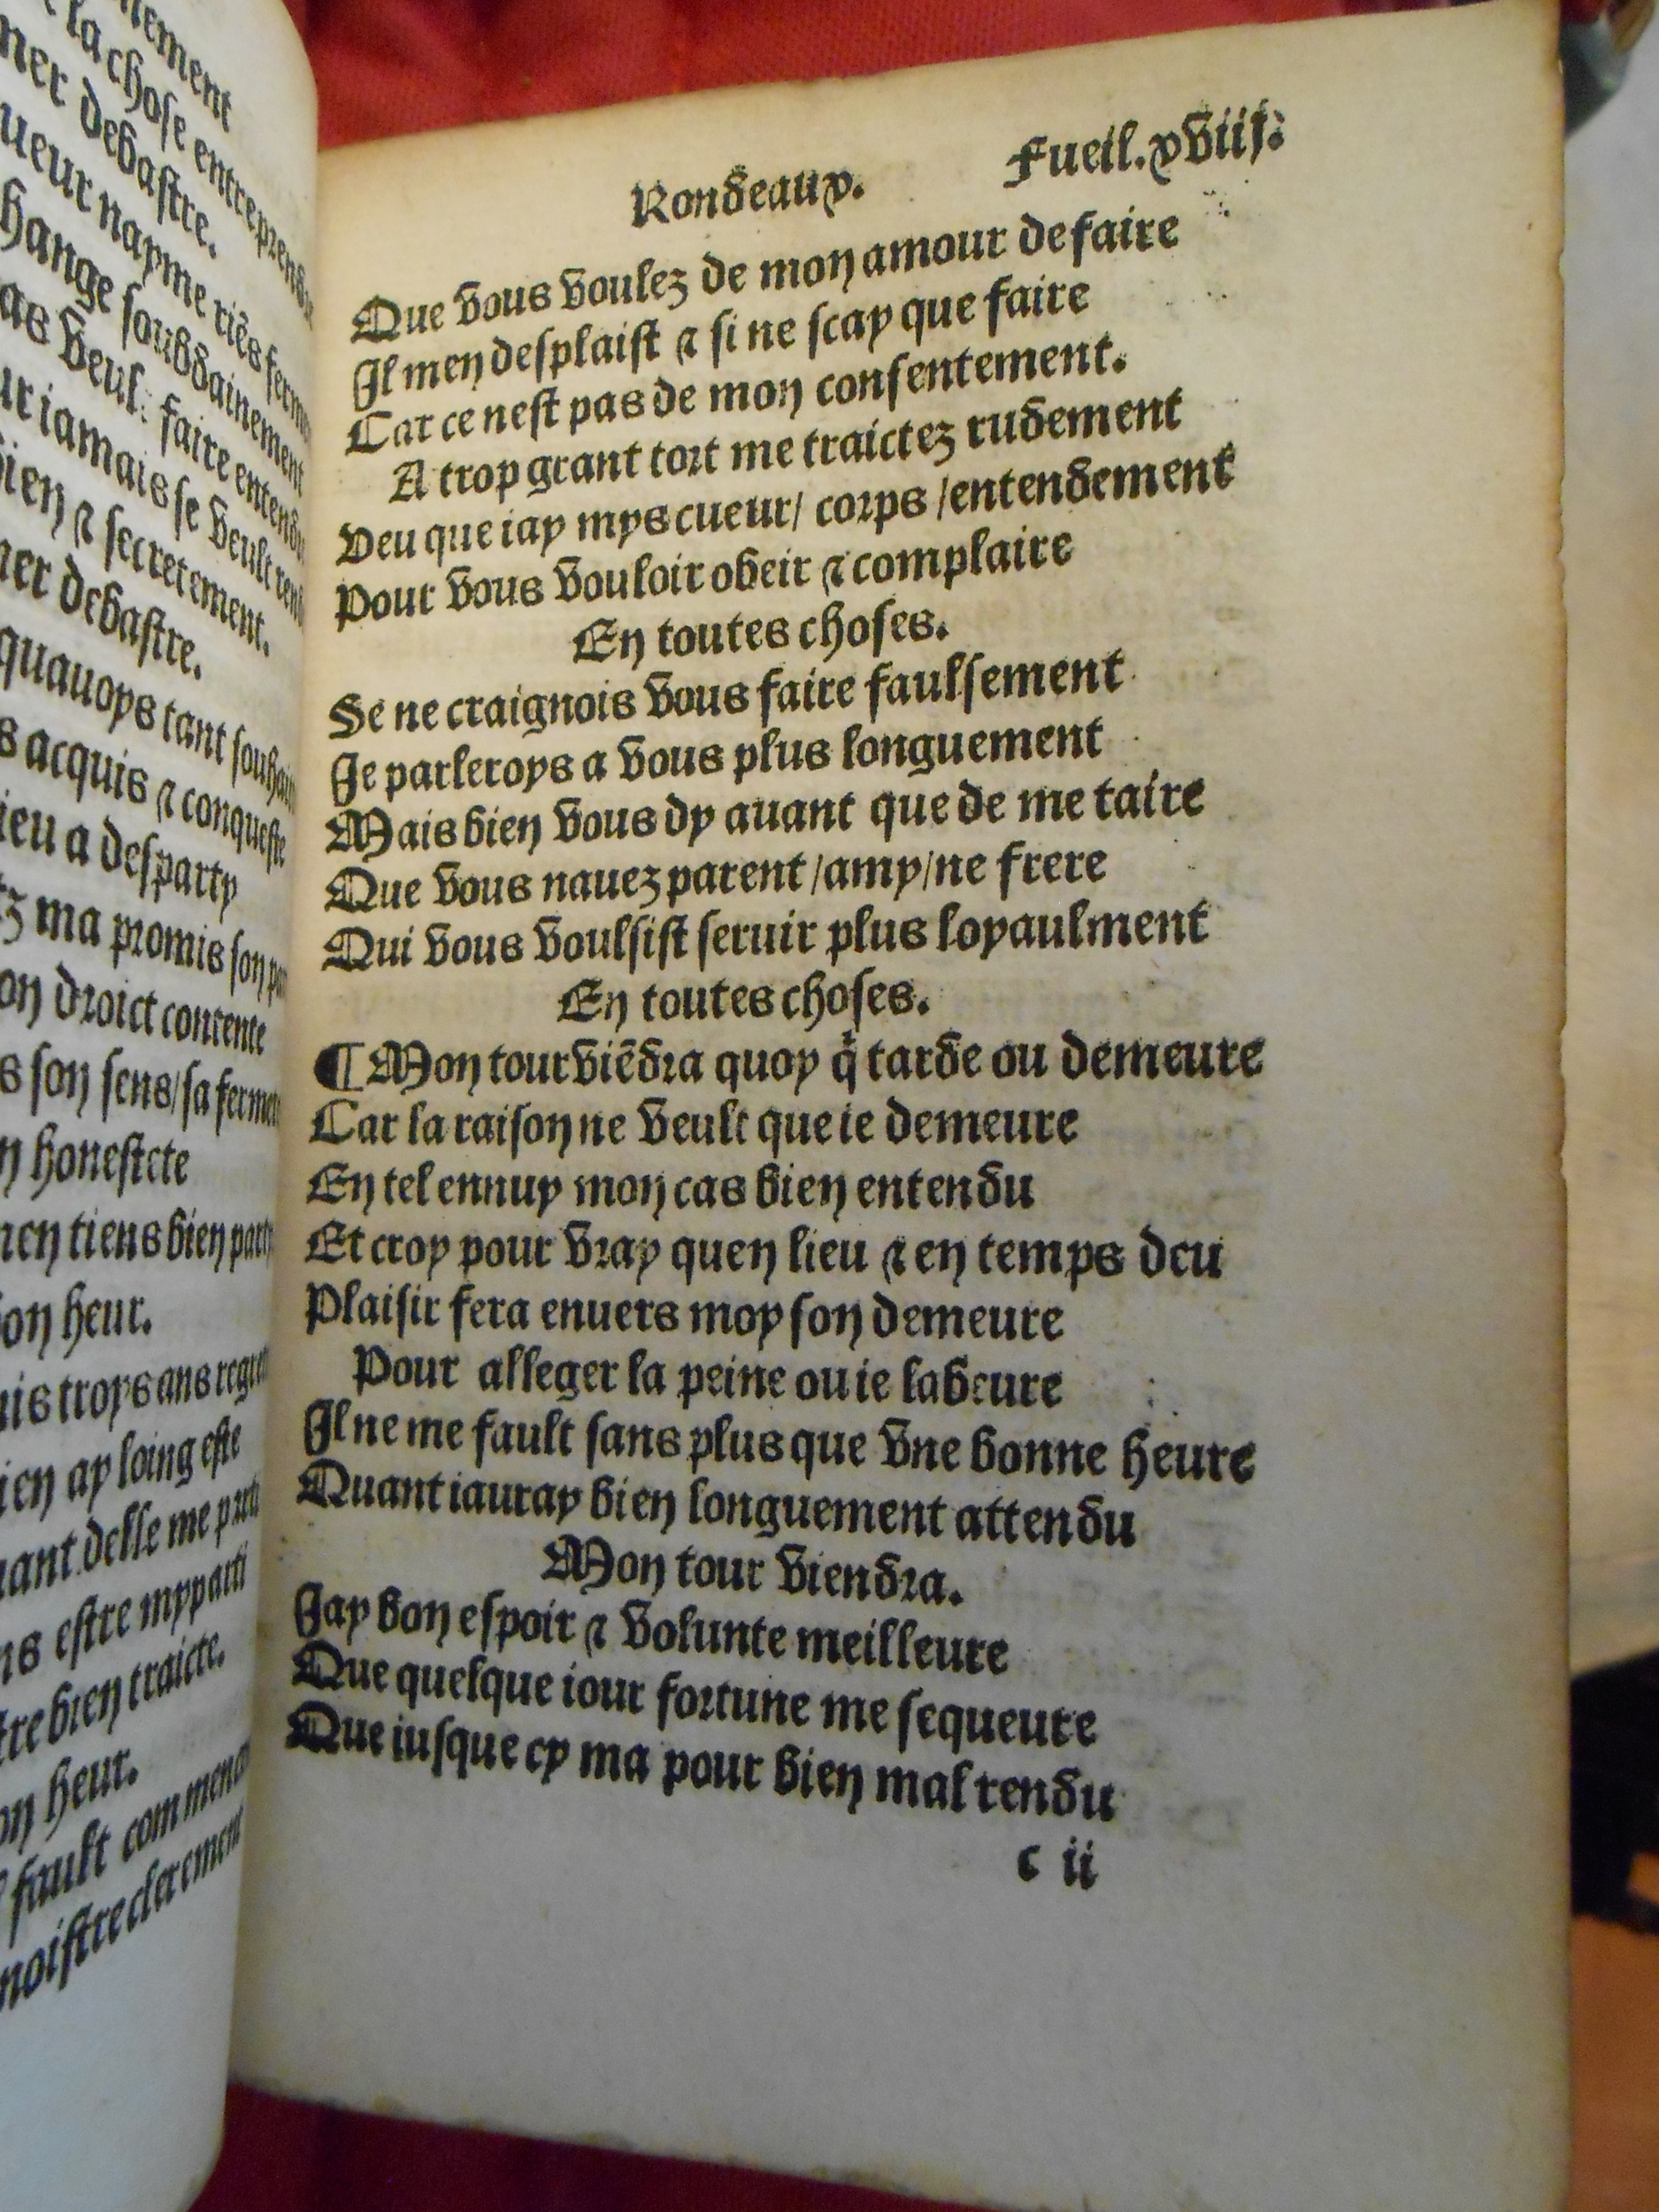 nement
la chose entreprendre
ner debastre.
ueur nayme riēs ferme
hange soubdainement
as veul: faire entendre
ur iamais se veult rend
bien ⁊ secretement.
ner debastre.
quauoys tant souhai
s acquis ⁊ conqueste
ieu a desparty
tz ma promis son pa
on droict contente
s son sens/sa ferme
n honestete
men tiens bien party
on heur.
uis troys ans regre
ien ay loing este
uant delle me party
ns estre myparti
tre bien traicte.
on heur.
fault commenc
noistre clerement
Rondeaux. Fueil.xviij.
Que vous voulez de mon amour defaire
Il men desplaist ⁊ si ne scay que faire
Car ce nest pas de mon consentement.
A trop grant tort me traictez rudement
Veu que iay mys cueur/ corps /entendement
Pour vous vouloir obeir ⁊ complaire
En toutes choses.
Se ne craignois vous faire faulsement
Je parleroys a vous plus longuement
Mais bien vous dy auant que de me taire
Que vous nauez parent /amy/ne frere
Qui vous voulsist seruir plus loyaulment
En toutes choses.
¶ Mon tour viēdra quoy q̄ tarde ou demeure
Car la raison ne veult que ie demeure
En tel ennuy mon cas bien entendu
Et croy pour vray quen lieu ⁊ en temps deu
Plaisir fera enuers moy son demeure
Pour alleger la peine ou ie labeure
Il ne me fault sans plus que vne bonne heure
Quant iauray bien longuement attendu
Mon tour viendra.
Jay bon espoir ⁊ volunte meilleure
Que quelque iour fortune me sequeure
Que iusque cy ma pour bien mal rendu
c ii